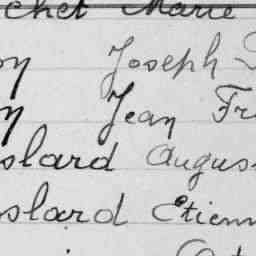 chet Marie
on Joseph
n Jean Fr
slard Augus
slard Etienn